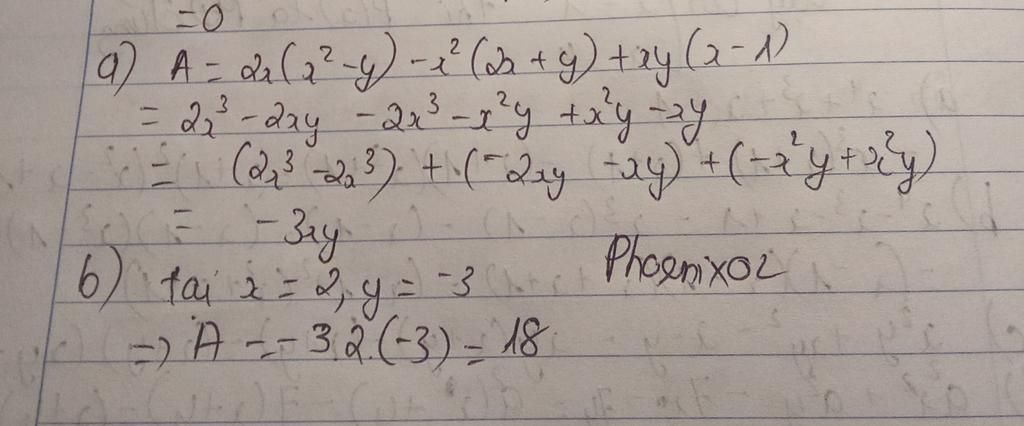 =0
a) A = 2x(x² - y) - x²(2x + y) + xy(x - 1)
= 2x³ - 2xy - 2x³ - x²y + x²y - xy
= (2x³ - 2x³) + (-2xy - xy) + (-x²y + x²y)
= -3xy
b) tại x = 2, y = -3
Phoenixoz
=> A = -3.2.(-3) = 18